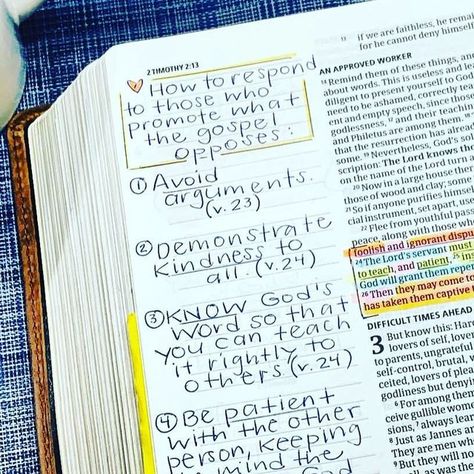 2 TIMOTHY 2:13
How to respond
to those who
promote what
the gospel
opposes:
① Avoid
arguments.
(v. 23)
② Demonstrate
Kindness to
all. (v. 24)
③ KNOW God's
word so that
you can teach
it rightly to
others (v. 24)
④ Be patient
with the other
person, keeping
mind the
if we are faithless, he rema
for he cannot deny himself
AN APPROVED WORKER
14 Remind them of these things, an
about words. This is useless and le
diligent to present yourself to God
need to be ashamed, correctly tea
ent and empty speech, since those
godlessness, 17 and their teaching
and Philetus are among them. 18
that the resurrection has alread
some. 19 Nevertheless, God's so
scription: The Lord knows
on the name of the Lord turn
20 Now in a large house there
those of wood and clay; some
21 So if anyone purifies himse
cial instrument, set apart, use
22 Flee from youthful pass
peace, along with those wh
foolish and ignorant dispu
24 The Lord's servant must
to teach, and patient, 25 ins
God will grant them repe
26 Then they may come to
has taken them captive t
DIFFICULT TIMES AHEAD
3 But know this: Hard
lovers of self, lover
to parents, ungratef
self-control, brutal,
ceited, lovers of plea
godliness but denyi
6 For among them
ceive gullible wom
sions, 7 always learn
8 Just as Jannes an
They are men wh
But they will not